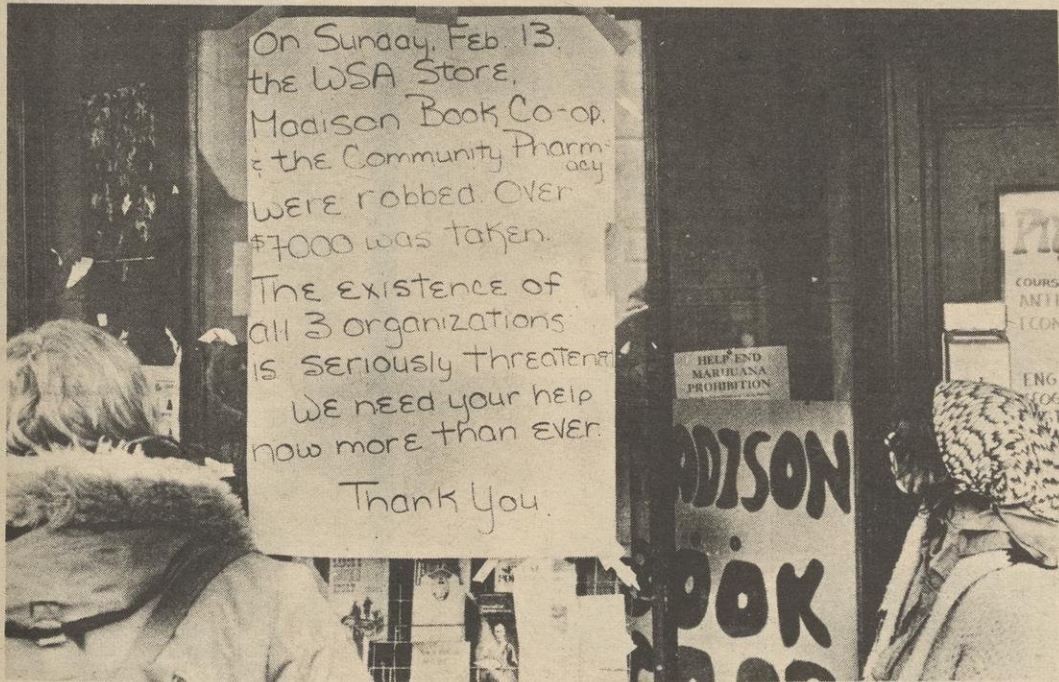 On Sunday, Feb. 13,
the WSA Store,
Madison Book Co-op,
& the Community Pharm-
acy
were robbed. Over
$7000 was taken.
The existence of
all 3 organizations
is seriously threatened
We need your help
now more than ever.
Thank You.
HELP END
MARIJUANA
PROHIBITION
ADISON
OOK
COURS
ANTI
ECON
ENG